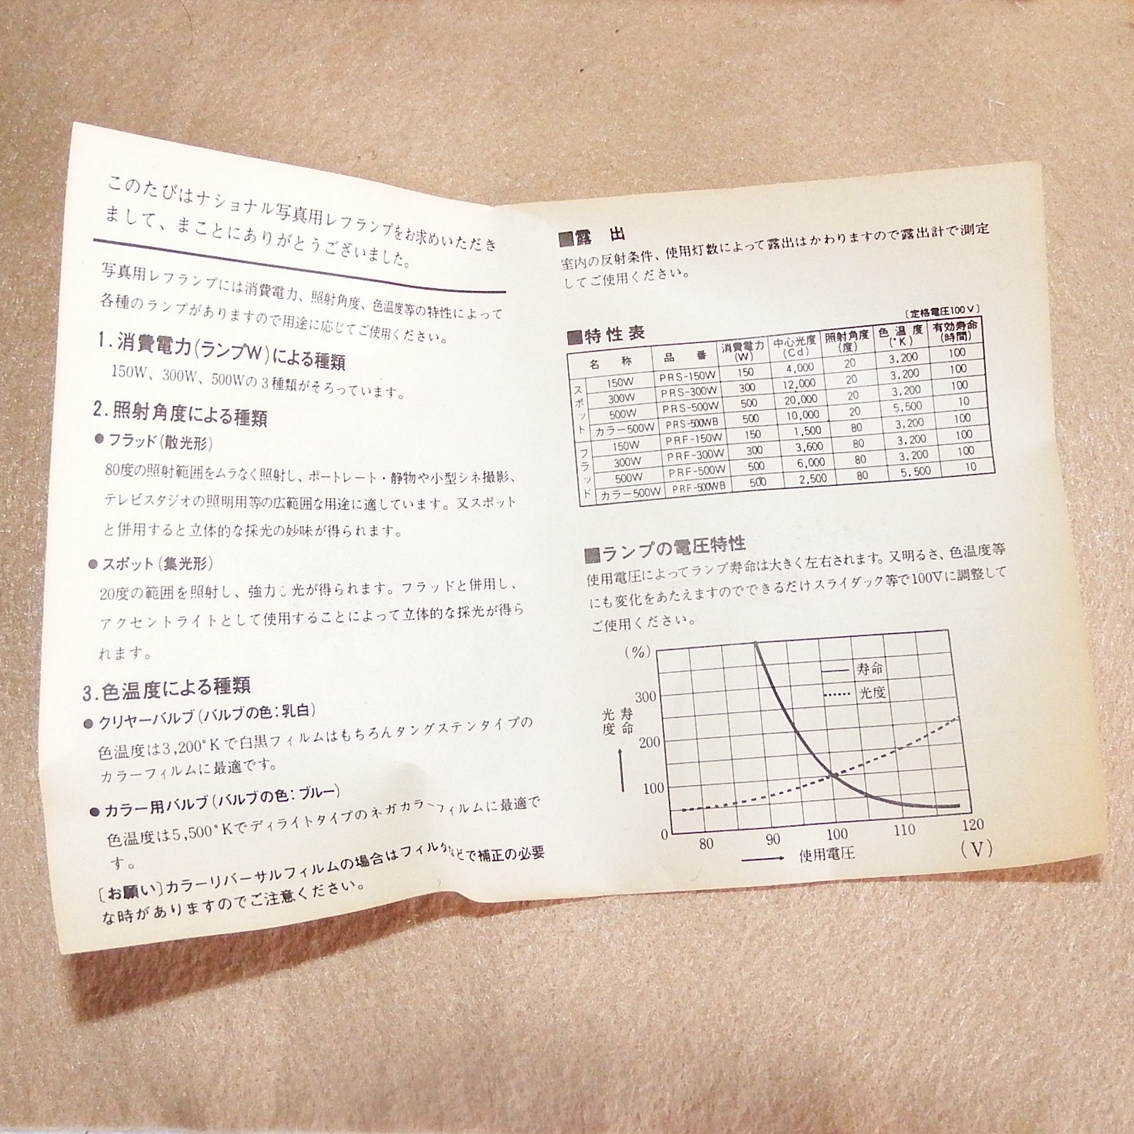 このたびはナショナル写真用レフランプをお求めいただき
まして、まことにありがとうございました。
写真用レフランプには消費電力、照射角度、色温度等の特性によって
各種のランプがありますので用途に応じてご使用ください。
1.消費電力(ランプW)による種類
150W、300W、500Wの3種類がそろっています。
2.照射角度による種類
●フラッド(散光形)
80度の照射範囲をムラなく照射し、ポートレート・静物や小型シネ撮影、
テレビスタジオの照明用等の広範囲な用途に適しています。又スポット
と併用すると立体的な採光の妙味が得られます。
●スポット(集光形)
20度の範囲を照射し、強力な光が得られます。フラッドと併用し、
アクセントライトとして使用することによって立体的な採光が得ら
れます。
3.色温度による種類
●クリヤーバルブ(バルブの色:乳白)
色温度は3,200°Kで白黒フィルムはもちろんタングステンタイプの
カラーフィルムに最適です。
●カラー用バルブ(バルブの色:ブルー)
色温度は5,500°Kでディライトタイプのネガカラーフィルムに最適で
す。
[お願い]カラーリバーサルフィルムの場合はフィルタなどで補正の必要
な時がありますのでご注意ください。
■露 出
室内の反射条件、使用灯数によって露出はかわりますので露出計で測定
してご使用ください。
■特性表
[定格電圧100V]
名 称 品 番 消費電力(W) 中心光度(Cd) 照射角度(度) 色温度(°K) 有効寿命(時間)
スポット
150W PRS-150W 150 4,000 20 3,200 100
300W PRS-300W 300 12,000 20 3,200 100
500W PRS-500W 500 20,000 20 3,200 100
カラー500W PRS-500WB 500 10,000 20 5,500 10
フラッド
150W PRF-150W 150 1,500 80 3,200 100
300W PRF-300W 300 3,600 80 3,200 100
500W PRF-500W 500 6,000 80 3,200 100
カラー500W PRF-500WB 500 2,500 80 5,500 10
■ランプの電圧特性
使用電圧によってランプ寿命は大きく左右されます。又明るさ、色温度等
にも変化をあたえますのでできるだけスライダック等で100Vに調整して
ご使用ください。
(%)
寿命
光度
300
200
100
0
寿命
光度
80 90 100 110 120
使用電圧
(V)